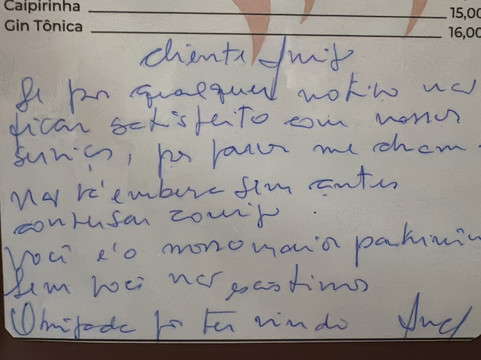 Caipirinha 15,00
Gin Tônica 16,00
cliente amigo
Se por qualquer motivo não
ficar satisfeito com nosso
serviço, por favor me chame
não vá embora sem antes
conversar comigo.
você é o nosso maior patrimônio
sem você não existimos
Obrigada por ter vindo